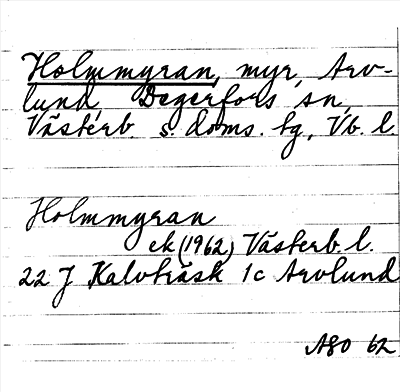 Holmmyran, myr, Arv-
lund, Degerfors sn,
Västerb. s. doms. tg, Vb. l.
Holmmyran
ek (1962) Västerb. l.
22 J Kalvträsk 1c Arvlund
A80 62